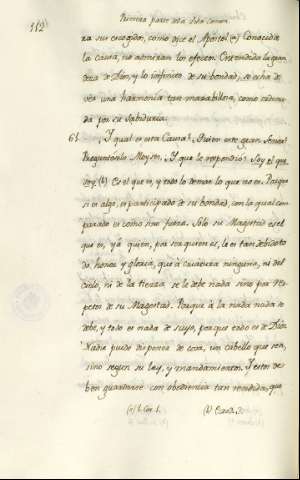 112
Primera parte dela Vida comun
ra sus escogidos, como dice el Apostol (a) Conocida
la causa, no admiran los efectos. Entendida la gran
deza de Dios, y lo infinito de su bondad, se echa de
ver una harmonía tan marabillosa, como ordena-
da por su Sabiduria.
61. Y qual es esta Causa? Quien este gran Señor?
Preguntóselo Moyses. Y que le respondió? Soy el que
soy (b) Es el que es, y todo lo demas lo que no es. Porque
si es algo, es participado de su bondad, con la qual com-
parado es como sino fuera. Solo su Magestad es el
que es, y á quien, por ser quien es, le es tan debido to
do honor y gloria, que á criatura ninguna, ni del
cielo, ni de la tierra se le debe nada sino por res-
petos de su Magestad. Porque à la nada nada se
debe, y todo es nada de suyo, porque todo es de Dios.
Nadie puede disponer de cosa, un cabello que sea,
sino segun su ley, y mandamientos. Y estos de-
ben guardarse con obediencia tan rendida, que
(a) 1. Cor. 1. (b) Exod. 3.